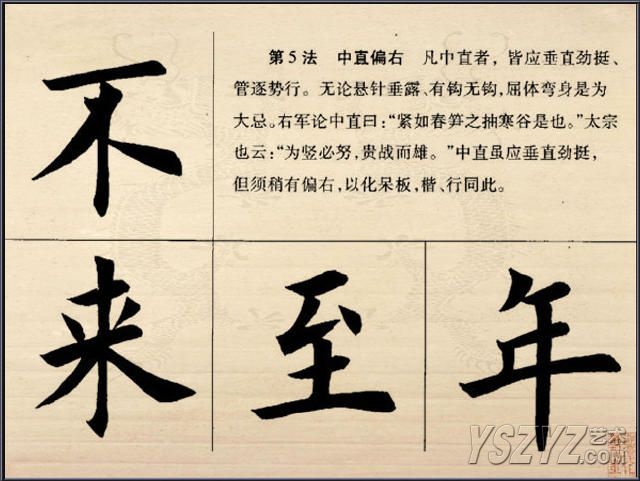 第5法 中直偏右 凡中直者，皆应垂直劲挺、
管逐势行。无论悬针垂露、有钩无钩，屈体弯身是为
大忌。右军论中直曰：“紧如春笋之抽寒谷是也。”太宗
也云：“为竖必努，贵战而雄。”中直虽应垂直劲挺，
但须稍有偏右，以化呆板，楷、行同此。
不
来 至 年
YSZYZ艺术
.COM